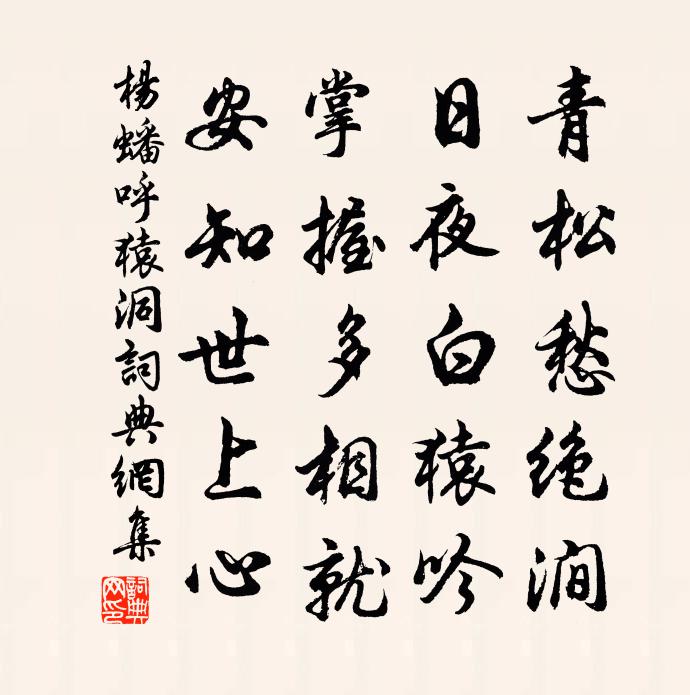 青松愁絶澗
日夜白猿吟
掌握多相就
安知世上心
楊蟠呼猿洞詞典網集
詞典網印